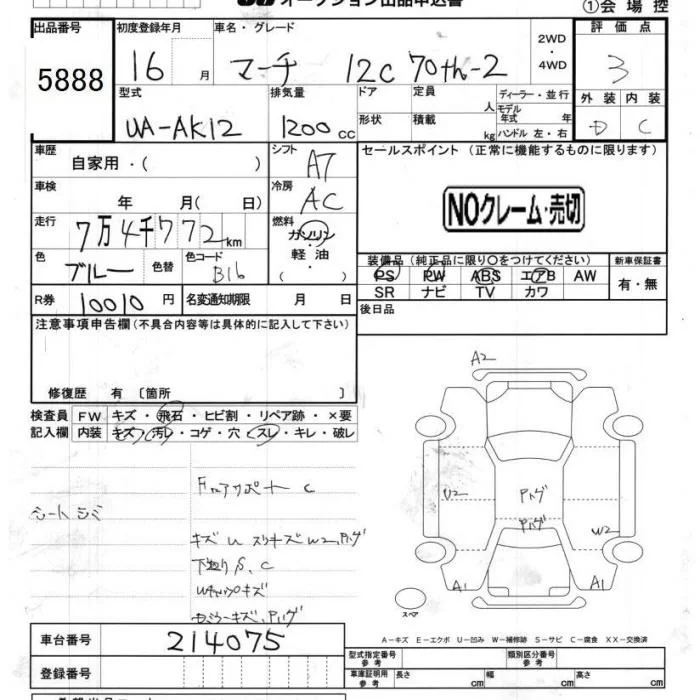 オークション出品申込書
①会場控
出品番号 初度登録年月 車名・グレード 2WD・4WD 評価点
5888 16 月 マーチ 12C 70th-2 3
型式 排気量 ドア 定員 人 ディーラー・並行 外装 内装
UA-AK12 1200cc 形状 積載 kg モデル年式 年 ハンドル 左・右 D C
車歴 自家用・( ) シフト AT セールスポイント (正常に機能するものに限ります)
車検 年 月( 日) 冷房 AC
NOクレーム・売切
走行 7万4千772km 燃料 ガソリン・軽油・( )
色 ブルー 色替 色コード B16
装備品 (純正品に限り○をつけてください) 新車保証書
PS PW ABS エアB AW 有・無
SR ナビ TV カワ
R券 10010円 名変通知期限 月 日 後日品
注意事項申告欄 (不具合内容等は具体的に記入して下さい)
修復歴 有 〔箇所 〕
検査員 FW キズ・飛石・ヒビ割・リペア跡・×要
記入欄 内装 キズ・汚レ・コゲ・穴・スレ・キレ・破レ
シートシミ
キズ U スリキズ W2,
下廻りS、C
A2
U2
W2
A1
A1
スペア
A−キズ E−エクボ U−凹み W−補修跡 S−サビ C−腐食 XX−交換済
車台番号 214075
型式指定番号 参考 類別区分番号 参考
登録番号 車庫証明用 参考 長さ cm 幅 cm 高さ cm